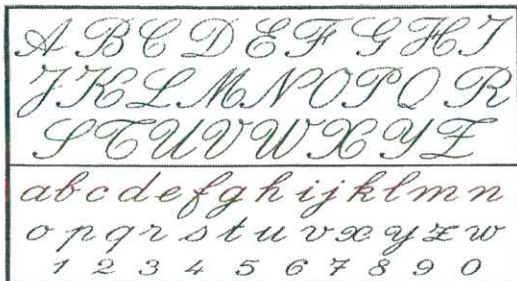 A B C D E F G H I
J K L M N O P Q R
S T U V W X Y Z
a b c d e f g h i j k l m n
o p q r s t u v x y z w
1 2 3 4 5 6 7 8 9 0